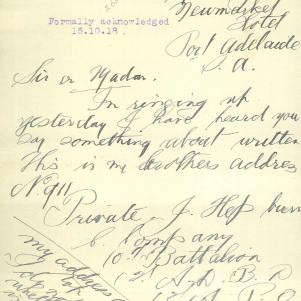 Formally acknowledged
15.10.18.
Newmarket
Hotel
Port Adelaide
S. A.
Sir or Madam.
In ringing up
yesterday I have heard you
say something about written
This is my brothers address
No 911
Private J. Hepburn
C. Company
10th Battalion
my address